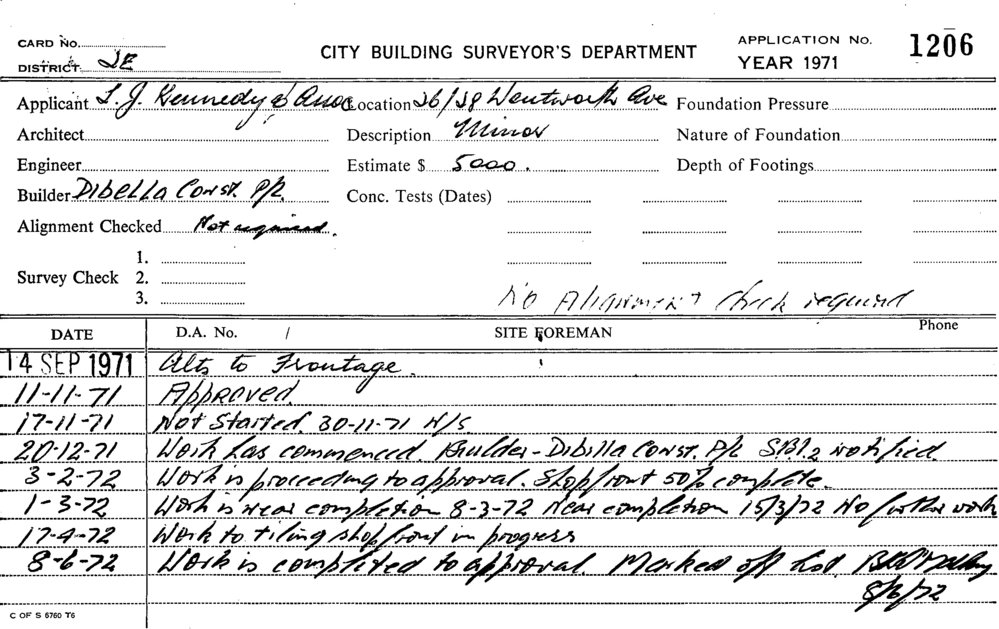 CARD No.
DISTRICT SE
CITY BUILDING SURVEYOR'S DEPARTMENT
APPLICATION No. 1206
YEAR 1971
Applicant L. J. Kennedy & Assoc Location 26/38 Wentworth Ave Foundation Pressure
Architect Description Minor Nature of Foundation
Engineer Estimate $ 5000. Depth of Footings
Builder Dibella Const. P/L. Conc. Tests (Dates)
Alignment Checked Not required.
1.
Survey Check 2.
3.
No Alignment check required
DATE D.A. No. / SITE FOREMAN Phone
14 SEP 1971 Alts to Frontage.
11-11-71 Approved.
17-11-71 Not Started. 30-11-71 N/S.
20-12-71 Work has commenced. Builder - Dibilla Const. P/L notified.
3-2-72 Work is proceeding to approval. Shopfront 50% complete.
1-3-72 Work is near completion 8-3-72 Near completion 15/3/72 No further work
17-4-72 Work to tiling shopfront in progress
8-6-72 Work is completed to approval. Marked off list.
8/6/72
C OF S 6760 T6